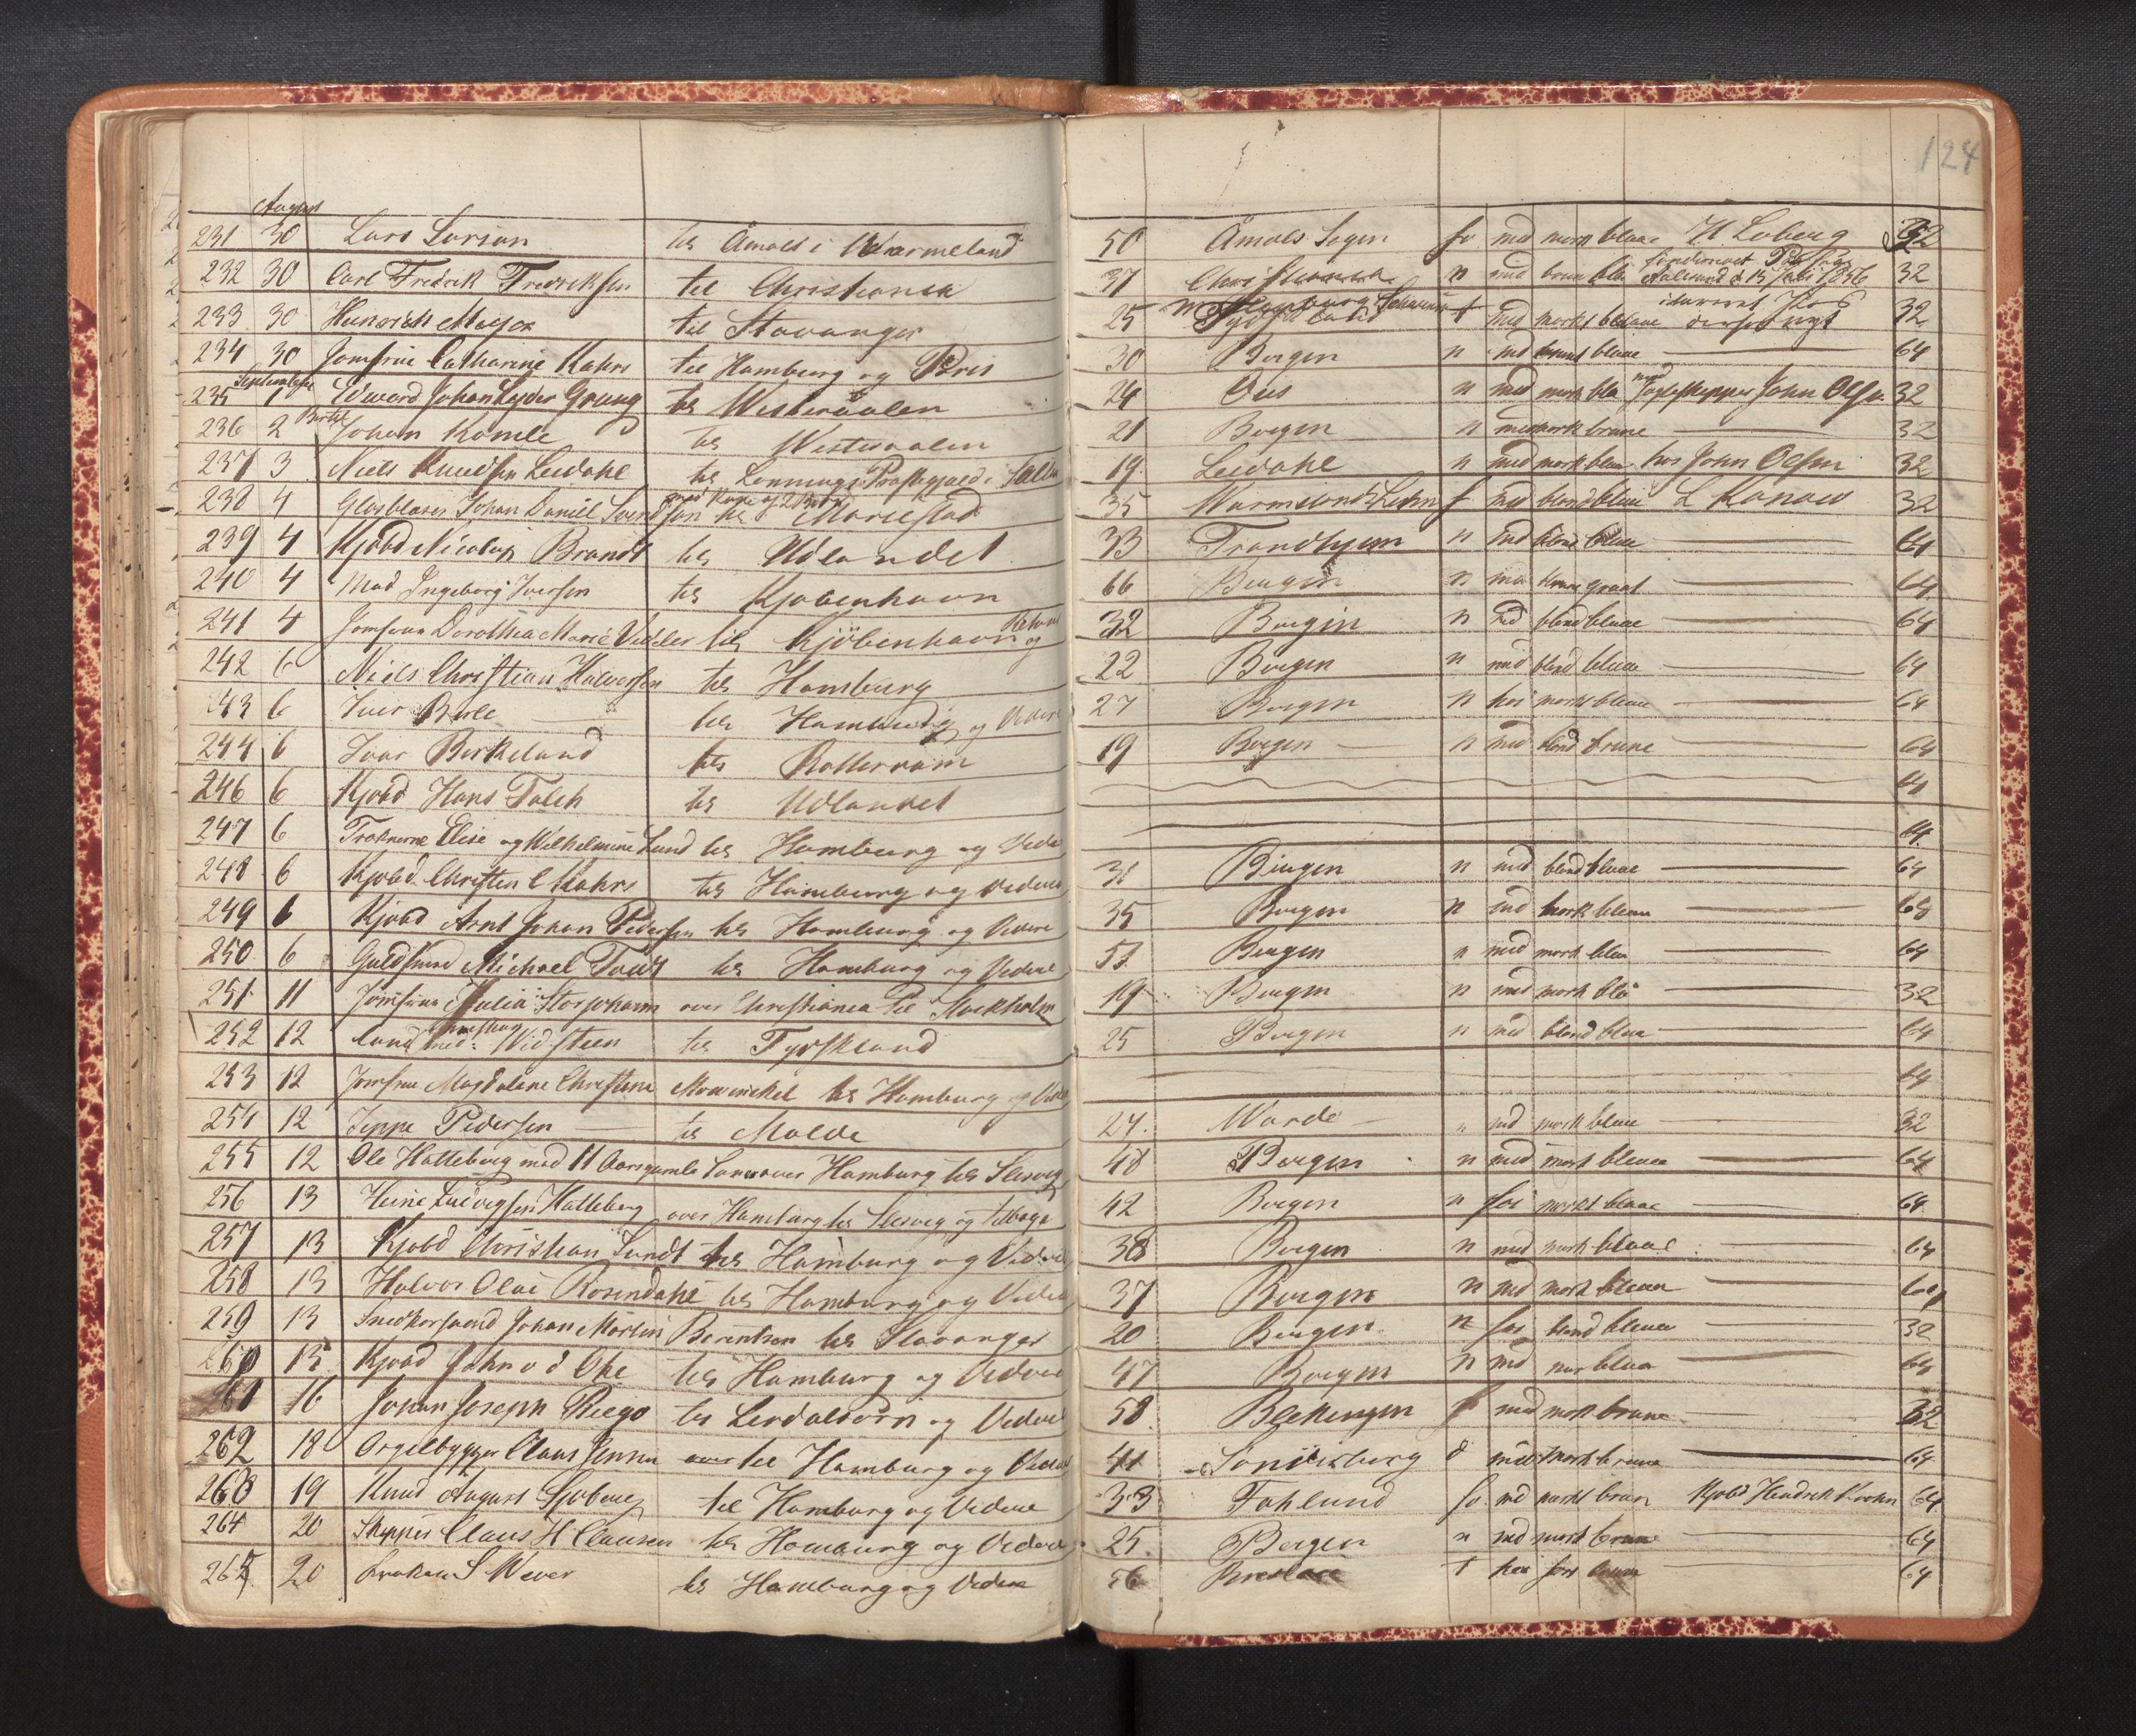 124
August
231 30 Lars Larsen til Åmoels i Wærmeland 50 Åmoels Sogen sv med mørk blaae H Loberg 32
232 30 Carl Fredrik Fredriksen til Christiania 37 Christiania n med brun blaa 32
233 30 Heinrich Meyer til Stavanger 25 Tydskland t med mørkt blaae 32
234 30 Jomfrue Catharina Kahrs til Hamburg og Paris 30 Bergen n med brunt blaae 64
September
235 1 Edvard Johan Lyder Grung til Westeraalen 24 Ous n med mørk blaa med Jagteskipper John Olsen 32
236 2 Johan Komle til Westeraalen 21 Bergen n med mørk brune 32
237 3 Niels Knudsen Leidahl til Præstegjeld i 19 Leidahl n med mørk blaa hos John Olsen 32
238 4 Glasblaser Johan Daniel Svendsen til Mariestad 35 f med blond blaae L Konow 32
239 4 Kjøbd Nicolay Brandt til Udlandet 33 Trondhjem n med blond blaae 64
240 4 Mad Ingeborg Iversen til Kjøbenhavn 66 Bergen n graat 64
241 4 Jomfrue Dorothea Marie Vedeler til Kjöbenhavn og 32 Bergen n med blond blaae 64
242 6 Niels Christian Halvorsen til Hamburg 22 Bergen n med blond blaae 64
243 6 Iver Berle til Hamburg og Videre 27 Bergen n høi mørk blaae 64
244 6 Ivar Birkeland til Rotterdam 19 Bergen n med blond brune 64
246 6 Kjøbd Hans Falch til Udlandet 64
247 6 Frøknerne Elise og Wilhelmine Lund til Hamburg og Vide 64
248 6 Kjøbd Christen C Kahrs til Hamburg og Videre 31 Bergen n med blond blaae 64
249 6 Kjøbd Arnt Johan Pedersen til Hamburg og Videre 35 Bergen n med mørk blaaa 64
250 6 Guldsmed Michael til Hamburg og Videre 51 Bergen n med mørk blaa 64
251 11 Jomfrue Julia Storjohann over Christiania til Stockholm 19 Bergen n med mørk blå 32
252 12 Cand med: Vidsteen til Tyskland 25 Bergen n med blond blaa 64
253 12 Jomfrue Magdalene Christine Mowinckel til Hamburg og 64
254 12 Jeppe Pedersen til Molde 27 Warde n med mørk blaae 32
255 12 Ole Hatteberg med 11 Aarsgamle Søn over Hamburg til Slesvig 48 Bergen n med mørk blaaa 64
256 13 Heine Ludvigsen Hatteberg over Hamburg til Slesvig og tilbage 42 Bergen n høi mørkt blaae 64
257 13 Kjøbd Christian Sundt til Hamburg og Videre 38 Bergen n med mørk blaae 64
258 13 Halvor Olai Rosendahl til Hamburg og Videre 37 Bergen n med mørk blaaa 64
259 13 Snedkersvend Johan Martin Berentsen til Stavanger 20 Bergen n høi blond blaaa 32
260 15 Kjøbd John v d Ohe til Hamburg og Videre 47 Bergen n med blaa 64
261 16 Johan Joseph Riego til Lerdalsørn og Videre 58 Blekingen f med mørk brune 32
262 18 Orgelbygger Claus Jensen til Hamburg og Videre 41 d med mørk brune 64
263 19 Knud August Sjøberg til Hamburg og Videre 33 Fahlund sv med mørkt brun Kjøbd Hendrik Krohn 64
264 20 Skipper Claus H Clausen til Hamburg og Videre 25 Bergen n med mørk brune 64
265 20 S Wever til Hamburg og Videre 56 Breslau t høi 64